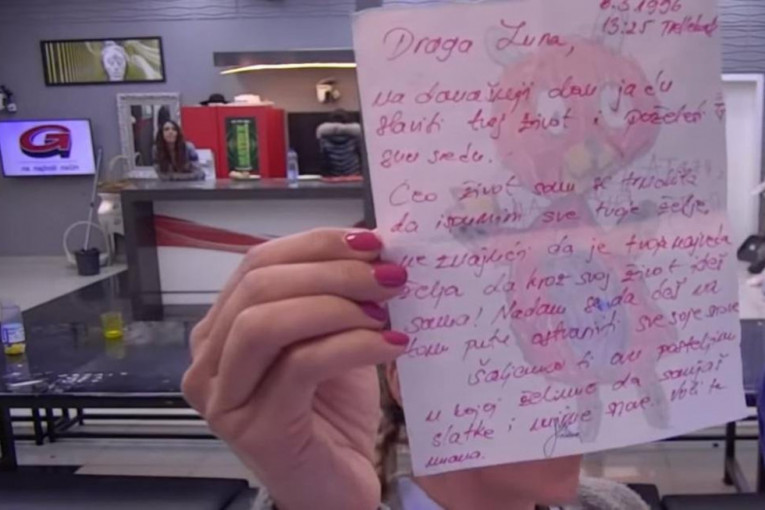 8.3.1996
13:25
Draga Luna,
na današnji dan ja ću
slaviti tvoj život i poželeti
svu sreću.
Ceo život sam se trudila
da ispunim sve tvoje želje,
ne znajući da je tvoja najveća
želja da kroz svoj život ideš
sama! Nadam se da ćeš na
tom putu ostvariti sve svoje snove
Šaljemo ti ovu posteljinu
u kojoj želimo da sanjaš
slatke i mirne snove. Voli te
mama.
G
na najbolji način